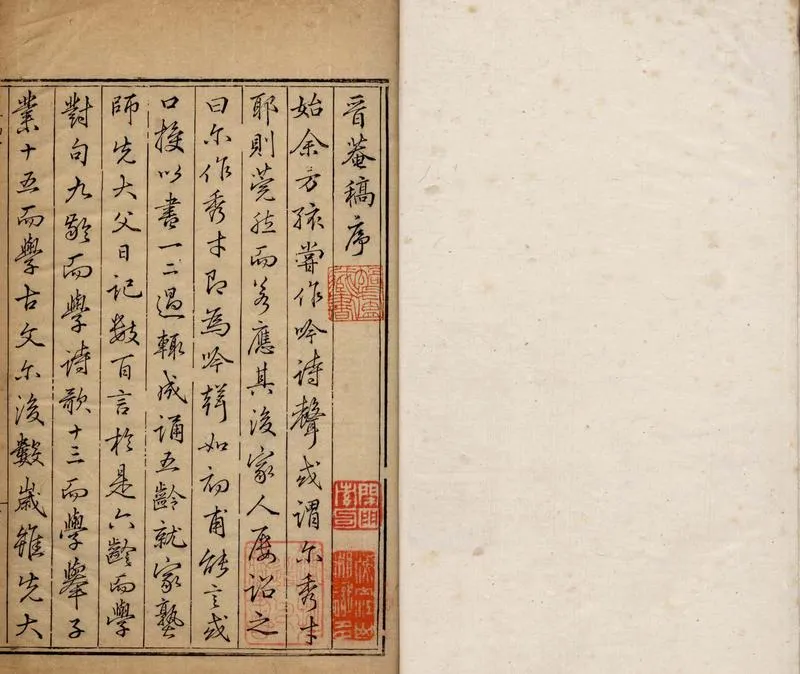 晉菴稿序
始余方孩嘗作吟詩聲或謂尔秀才
耶則莞然而若應其後家人屡詒之
曰尔作秀才即為吟聲如初甫能言或
口授以書一二過輒成誦五齡就家塾
師先大父日記數百言於是六齡而學
對句九齡而學詩歌十三而學舉子
業十五而學古文尔後數歲雖先大